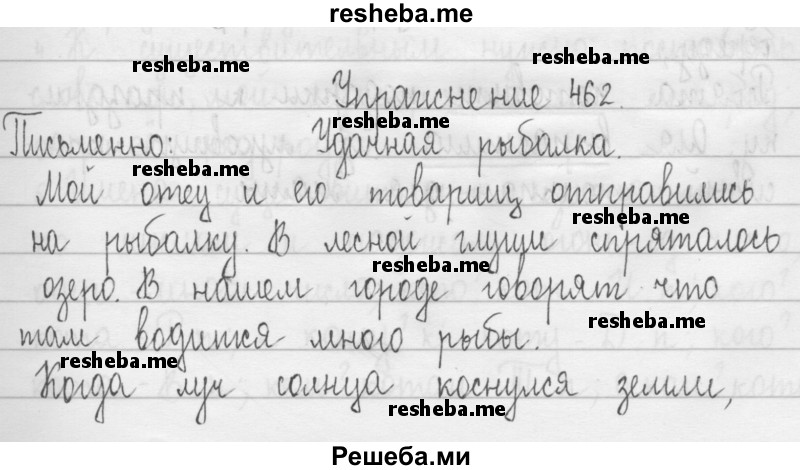 resheba.me
resheba.me resheba.me
Упражнение 462.
resheba.me
Письменно: Удачная рыбалка.
resheba.me
Мой отец и его товарищ отправились
resheba.me
на рыбалку. В лесной глуши спряталось
resheba.me
озеро. В нашем городе говорят что
resheba.me
там водится много рыбы.
resheba.me
Когда луч солнца коснулся земли,
resheba.me
Решеба.ми